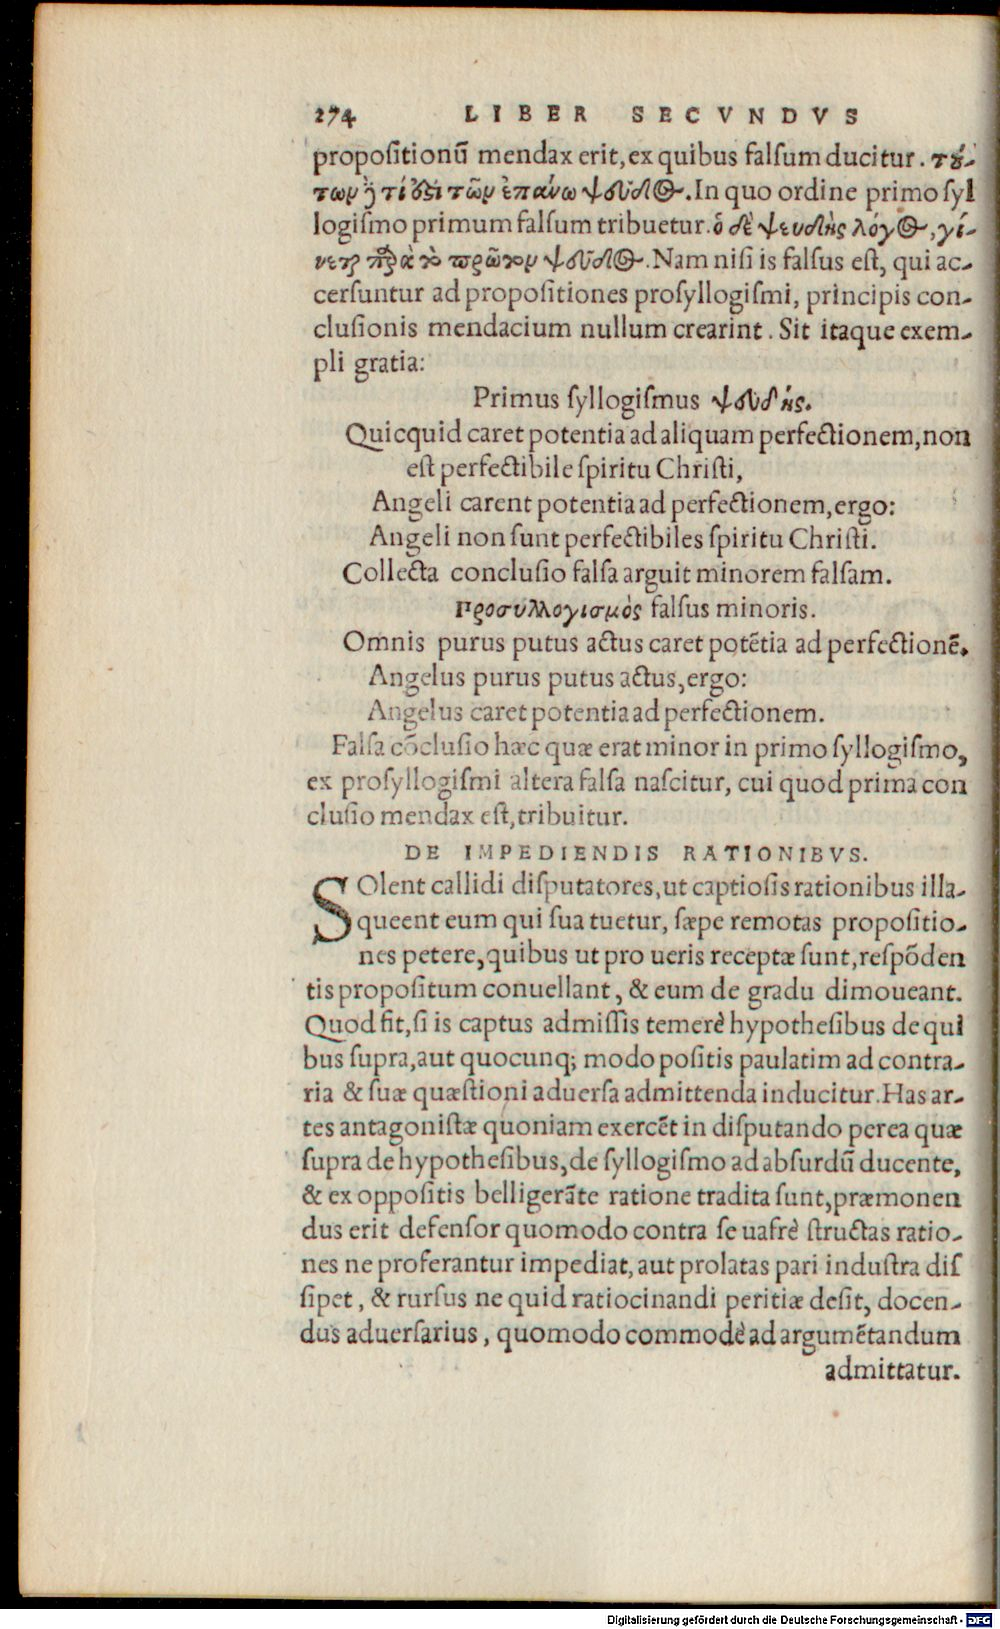 274 LIBER SECVNDVS
propoſitionū mendax erit, ex quibus falſum ducitur. τού-
των ἤ τί ὅξι τῶν ἐπάνω ψεῦδος. In quo ordine primo ſyl
logiſmo primum falſum tribuetur. ὁ δὲ ψευδὴς λόγος, γί-
νεται παρὰ τὸ πρῶτον ψεῦδος. Nam niſi is falſus eſt, qui ac-
cerſuntur ad propoſitiones proſyllogiſmi, principis con-
cluſionis mendacium nullum crearint. Sit itaque exem-
pli gratia:
Primus ſyllogiſmus ψευδής.
Quicquid caret potentia ad aliquam perfectionem, non
eſt perfectibile ſpiritu Chriſti,
Angeli carent potentia ad perfectionem, ergo:
Angeli non ſunt perfectibiles ſpiritu Chriſti.
Collecta concluſio falſa arguit minorem falſam.
Προσυλλογισμὸς falſus minoris.
Omnis purus putus actus caret potētia ad perfectionē.
Angelus purus putus actus, ergo:
Angelus caret potentia ad perfectionem.
Falſa cōcluſio hæc quæ erat minor in primo ſyllogiſmo,
ex proſyllogiſmi altera falſa naſcitur, cui quod prima con
cluſio mendax eſt, tribuitur.
DE IMPEDIENDIS RATIONIBVS.
SOlent callidi diſputatores, ut captioſis rationibus illa-
queent eum qui ſua tuetur, ſæpe remotas propoſitio-
nes petere, quibus ut pro ueris receptæ ſunt, reſpōden
tis propoſitum conuellant, & eum de gradu dimoueant.
Quod fit, ſi is captus admiſſis temerè hypotheſibus de qui
bus ſupra, aut quocunq; modo poſitis paulatim ad contra-
ria & ſuæ quæſtioni aduerſa admittenda inducitur. Has ar-
tes antagoniſtæ quoniam exercēt in diſputando per ea quæ
ſupra de hypotheſibus, de ſyllogiſmo ad abſurdū ducente,
& ex oppoſitis belligerāte ratione tradita ſunt, præmonen
dus erit defenſor quomodo contra ſe uafrè ſtructas ratio-
nes ne proferantur impediat, aut prolatas pari induſtra diſ
ſipet, & rurſus ne quid ratiocinandi peritiæ deſit, docen-
dus aduerſarius, quomodo commodè ad argumētandum
admittatur.
Digitalisierung gefördert durch die Deutsche Forschungsgemeinschaft - DFG